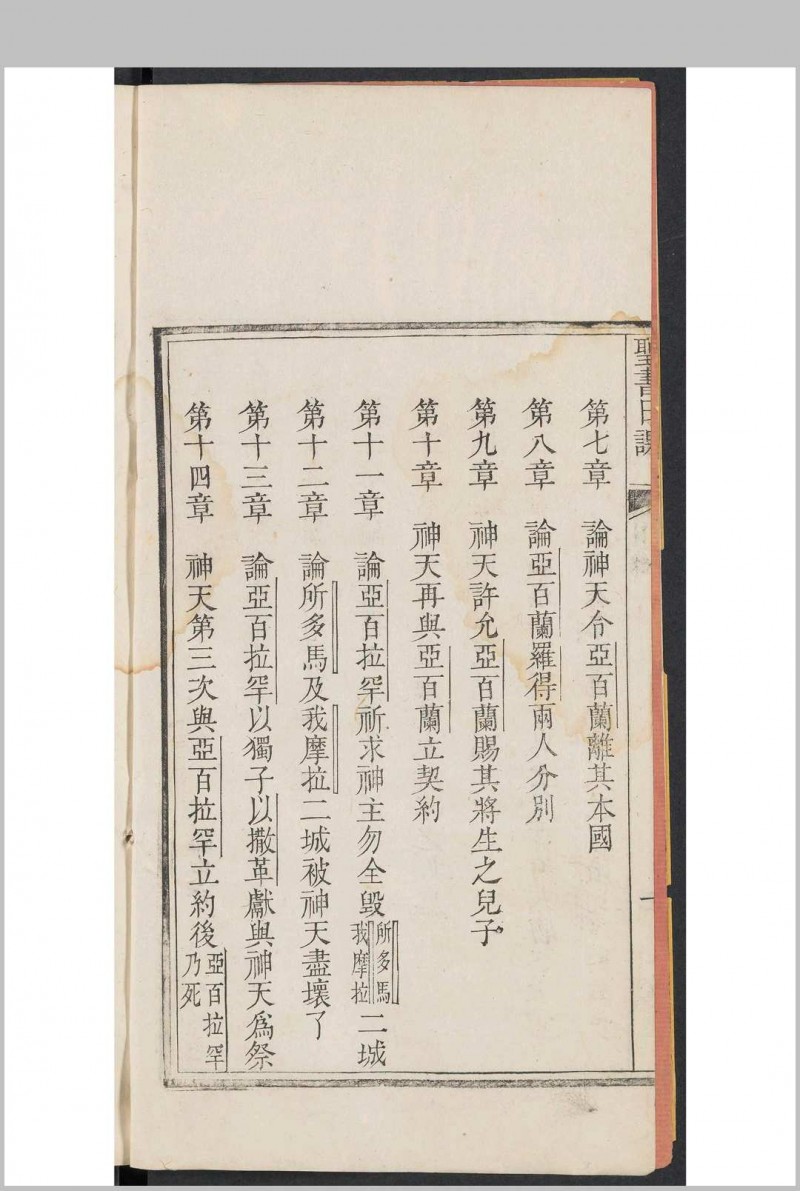 聖書日課
第七章 論神天令亞百蘭離其本國
第八章 論亞百蘭羅得兩人分別
第九章 神天許允亞百蘭賜其將生之兒子
第十章 神天再與亞百蘭立契約
第十一章 論亞百拉罕祈求神主勿全毀所多馬我摩拉二城
第十二章 論所多馬及我摩拉二城被神天盡壞了
第十三章 論亞百拉罕以獨子以撒革獻與神天爲祭
第十四章 神天第三次與亞百拉罕立約後亞百拉罕乃死